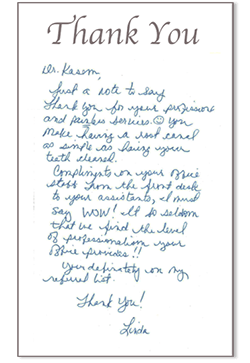 Thank You
Dr. Kasem,
Just a note to say
thank you for your profession
and painless services. ☺ You
make having a root canal
as simple as having your
teeth cleaned.
Compliments on your office
staff from the front desk
to your assistants, I must
say WOW! It's so seldom
that we find the level
of professionalism your
office provides!!
Your definitely on my
referral list.
Thank You!
Linda